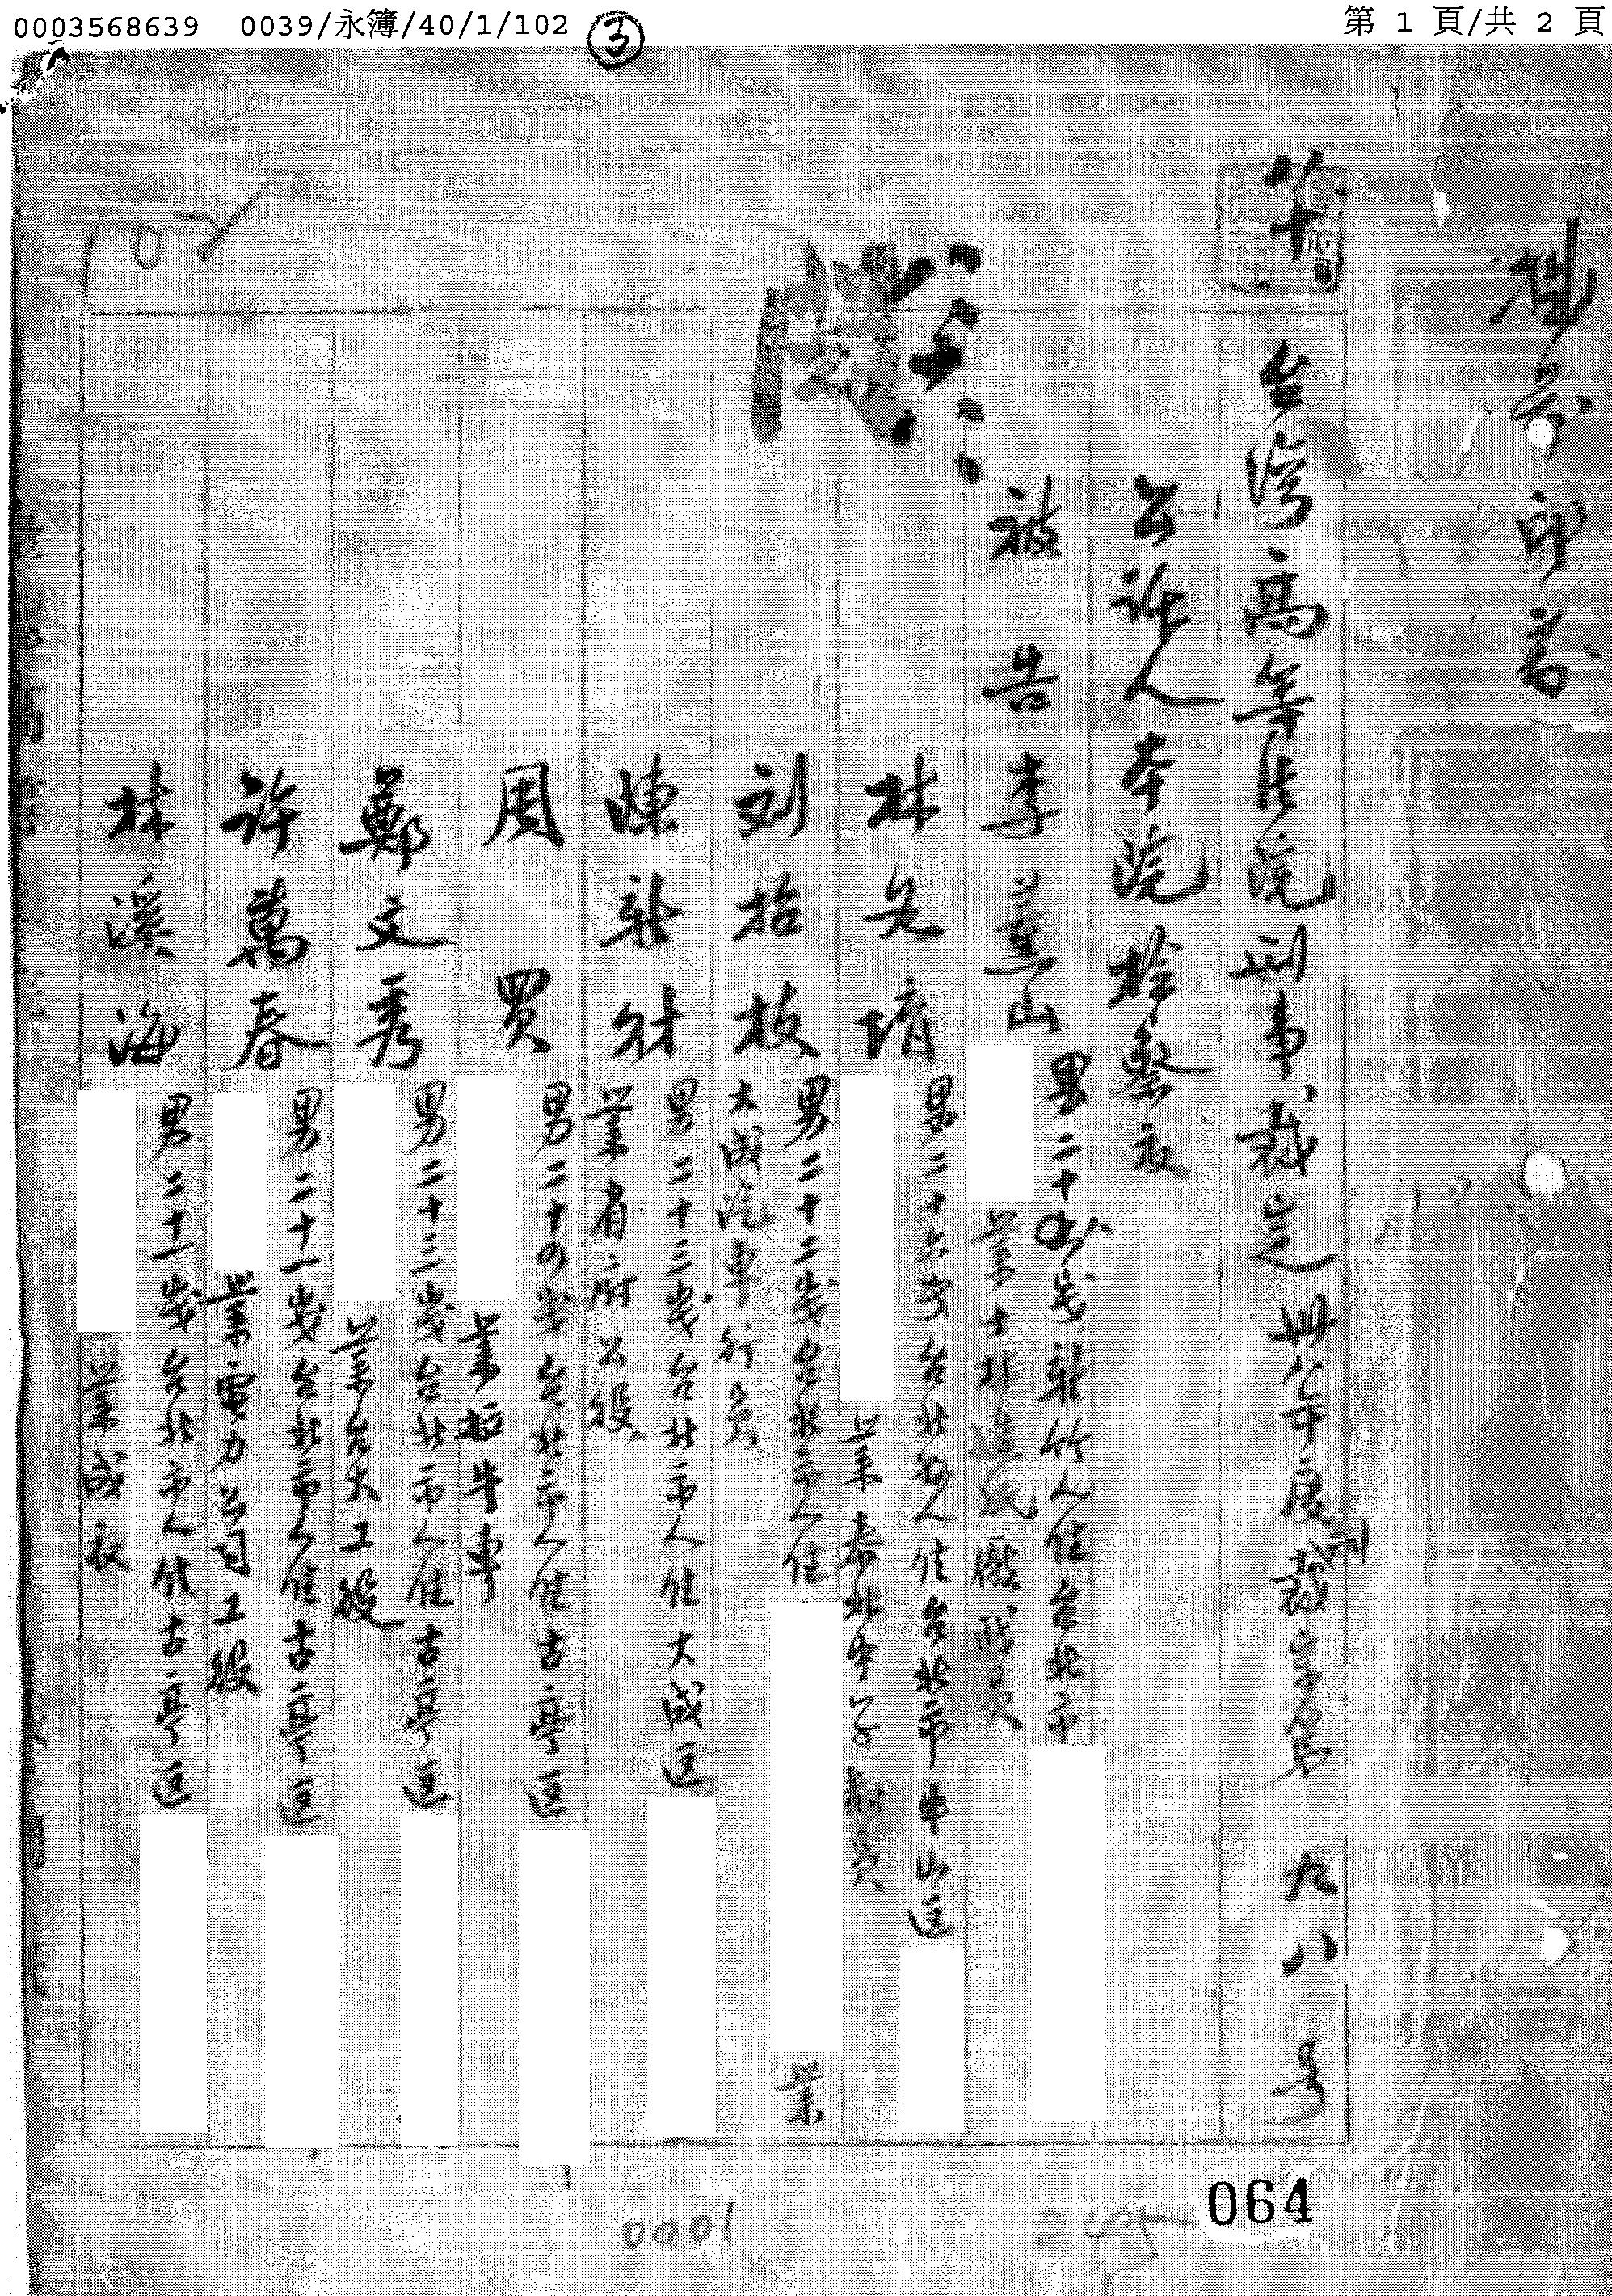 0003568639 0039/永簿/40/1/102 ③ 第 1 頁/共 2 頁
台湾高等法院刑事裁定 卅八年度刑裁字第 九八 号
公诉人 本院檢察官
被告 李薑山 男二十四歲新竹人住台北市
業
林允堉 男二十六歲台北縣人住台北市中山区
業泰北中学教員
刘招枝 男二十二歲台北市人住 業
大成汽車行員
陳新財 男二十三歲台北市人住大成区
業省府公役
周 買 男二十四歲台北市人住古亭区
業拉牛車
鄭文秀 男二十三歲台北市人住古亭区
業台大工役
许萬春 男二十一歲台北市人住古亭区
業電力公司工役
林溪海 男二十一歲台北市人住古亭区
業成衣
064
0001